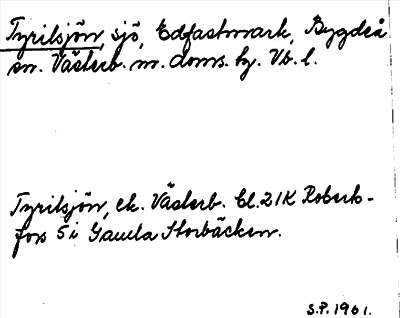 Tyrilsjön, sjö, Edfastmark, Bygdeå
sn. Västerb. m. doms. hg. Vb. l.
Tyrilsjön, ek. Västerb. bl. 21 K Roberts-
fors 5 i Gamla Storbäcken.
S.P. 1961.